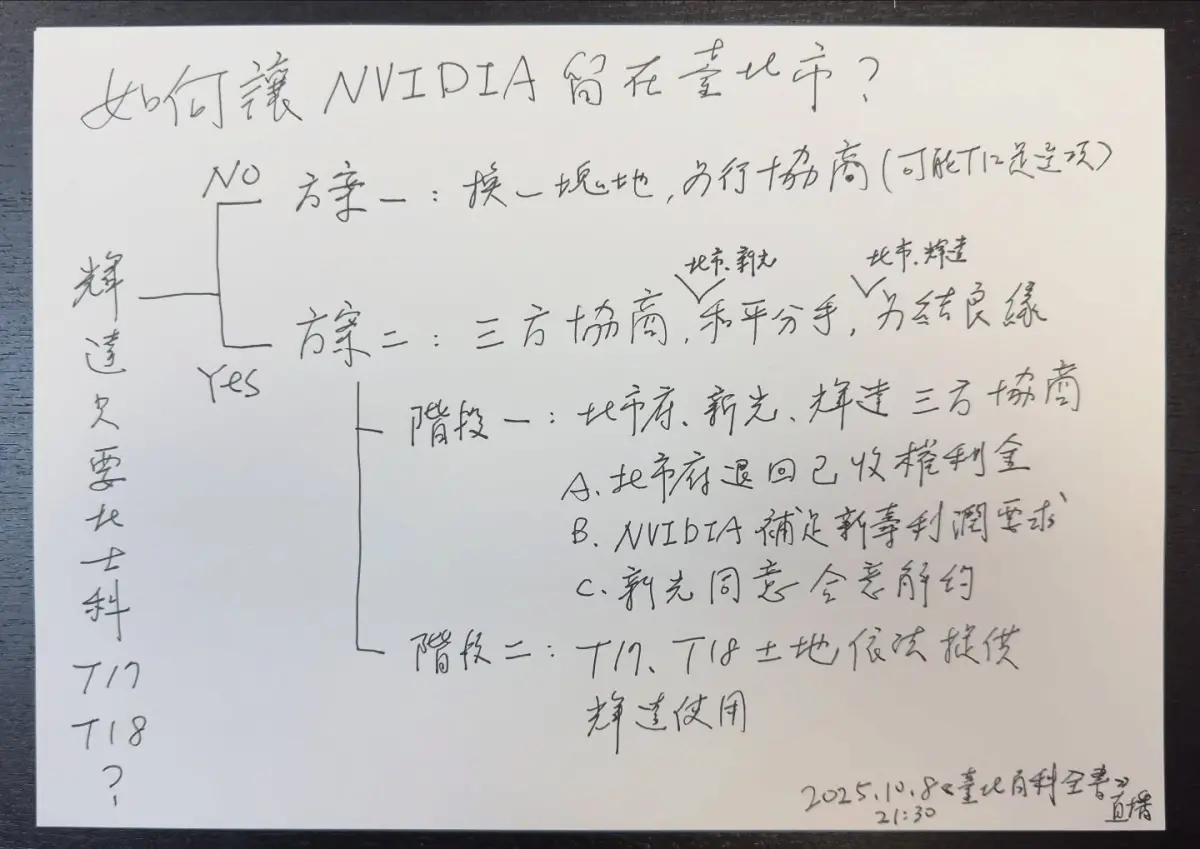 如何讓 NVIDIA 留在臺北市？
NO
方案一：換一塊地，另行協商(可能T12是選項)
輝達只要北士科T17 T18？
北市、新光
北市、輝達
方案二：三方協商，和平分手，另結良緣
Yes
階段一：北市府、新光、輝達三方協商
A. 北市府退回已收權利金
B. NVIDIA 補足新壽利潤要求
C. 新光同意合意解約
階段二：T17、T18土地依法提供
輝達使用
2025.10.8《臺北百科全書》
21:30
直播